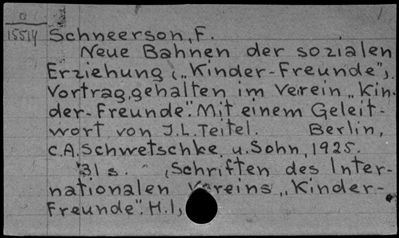 0
15514
Schneerson, F.
Neue Bahnen der sozialen
Erziehung („Kinder-Freunde").
Vortrag, gehalten im Verein „Kin-
der-Freunde". Mit einem Geleit-
wort von J.L. Teitel. Berlin,
C.A. Schwetschke u. Sohn, 1925.
31 s. (Schriften des Inter-
nationalen Vereins „Kinder-
Freunde". H.1,